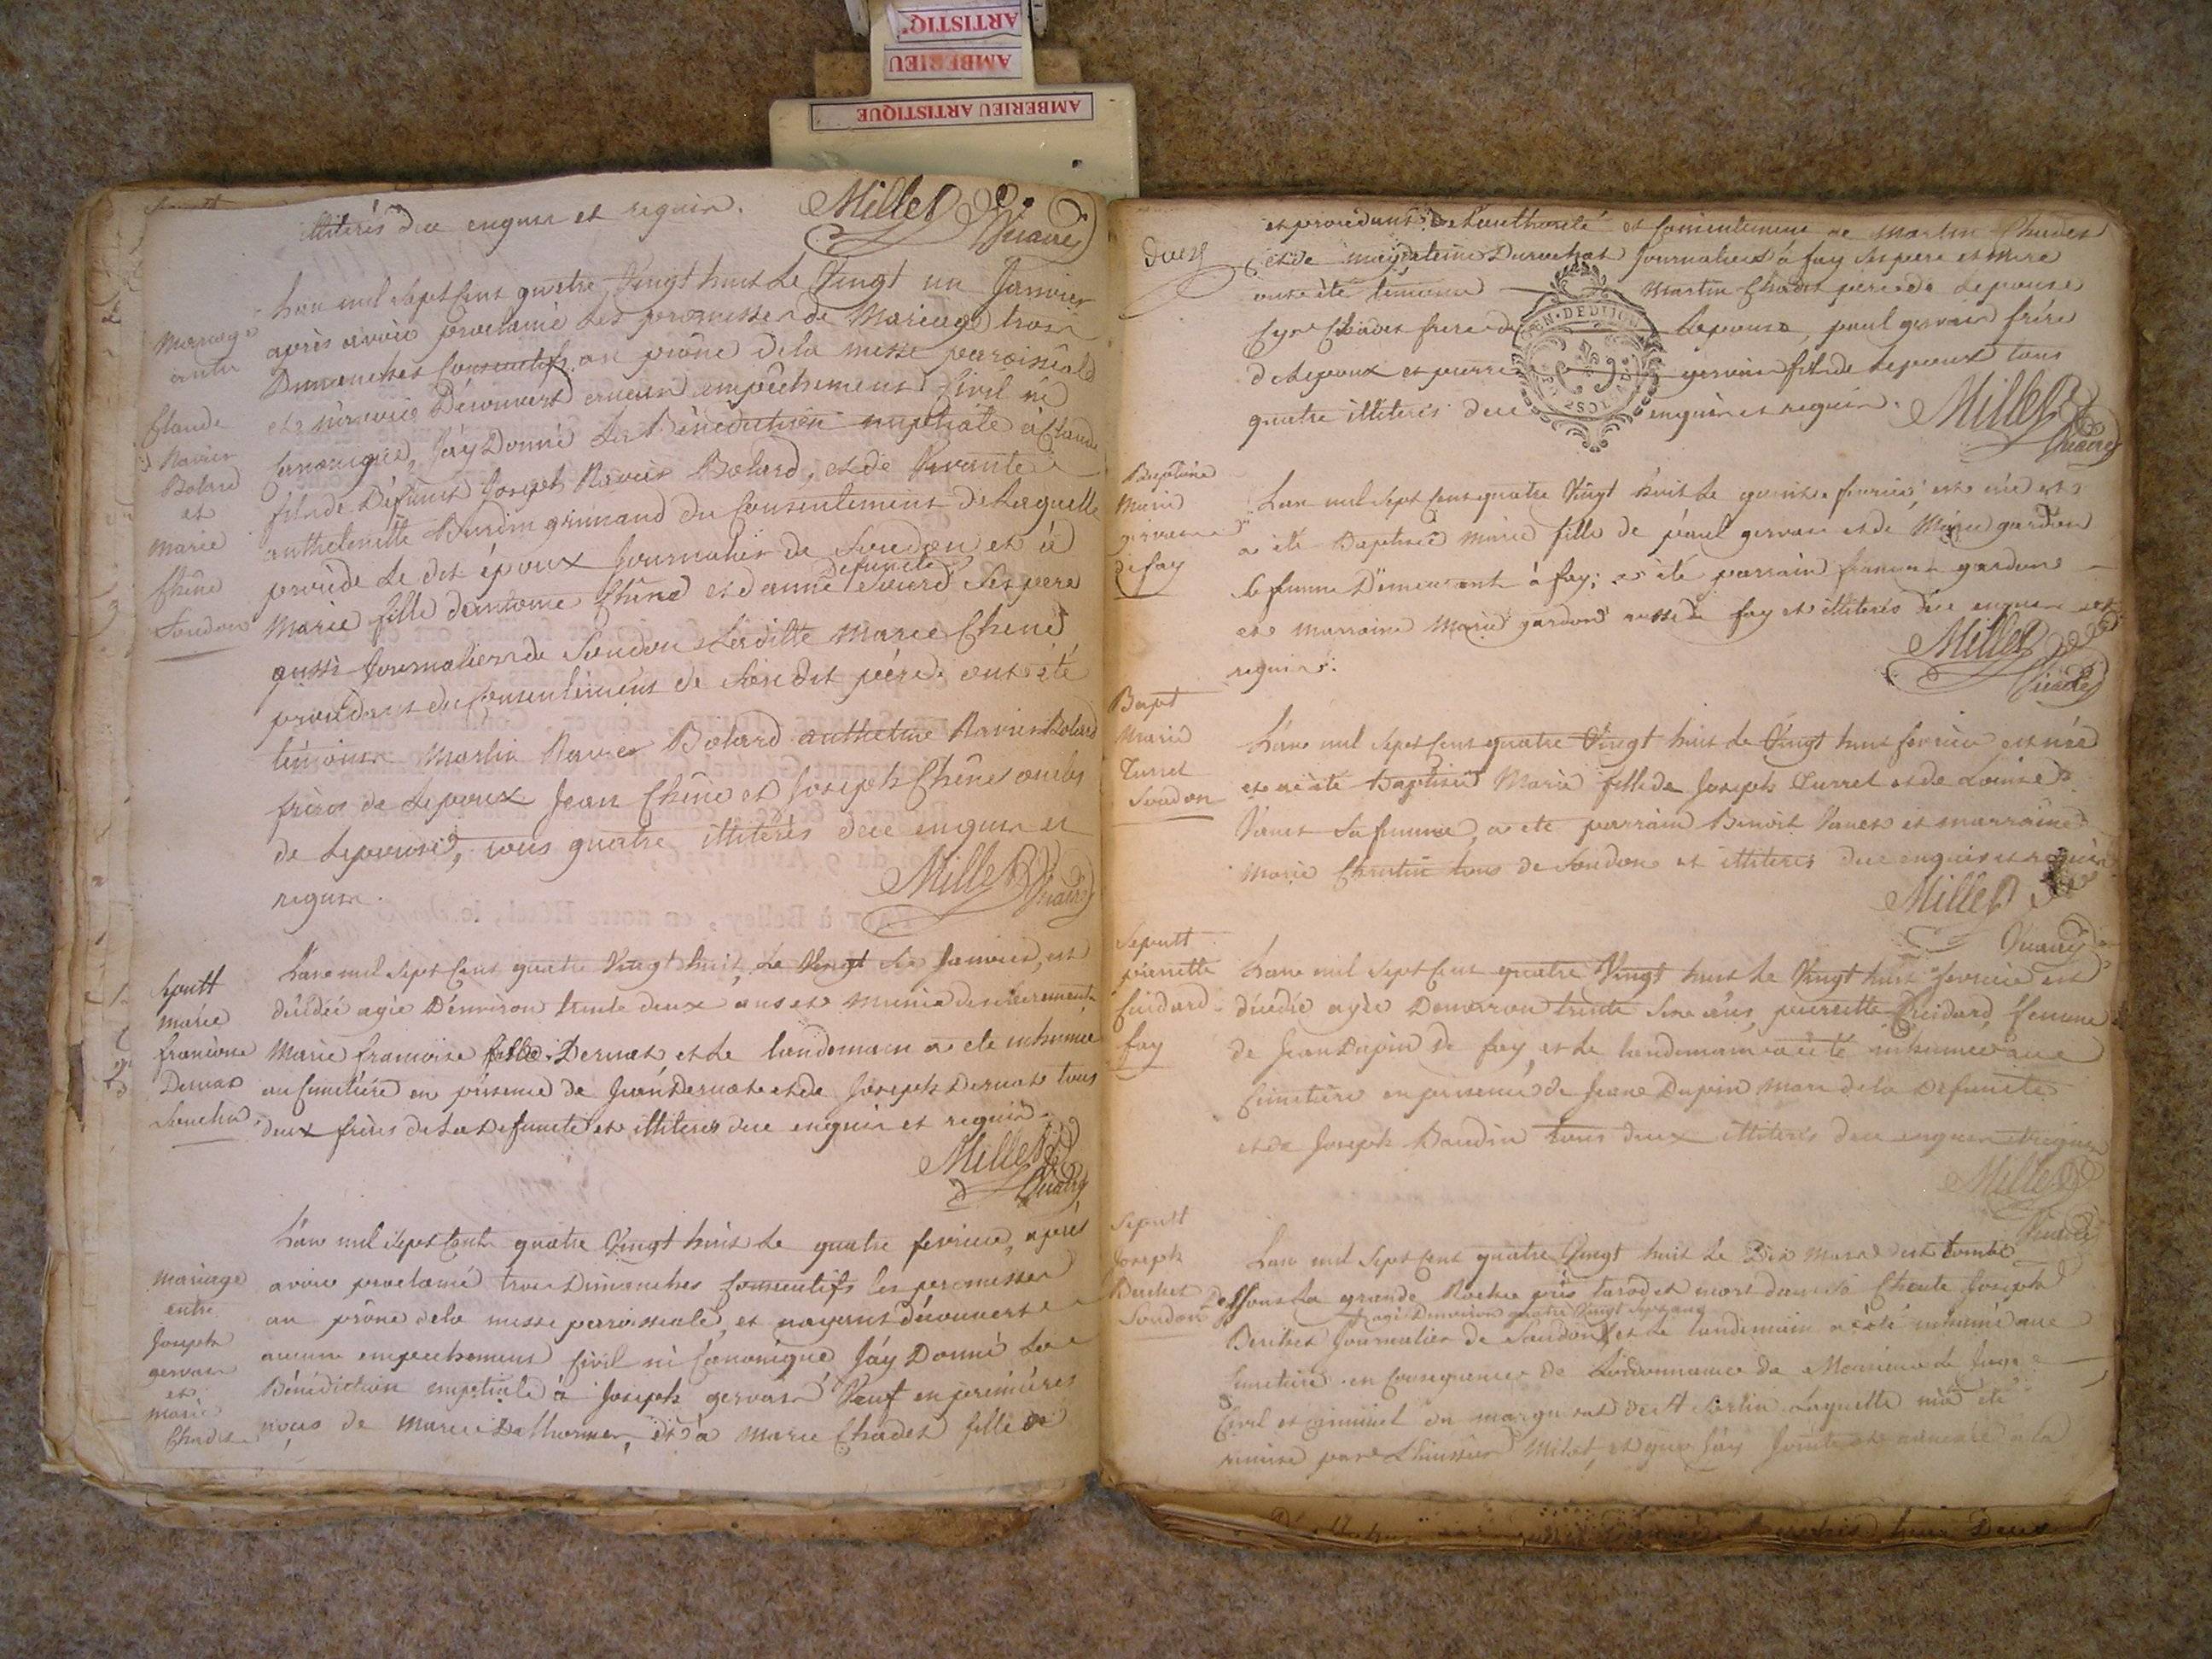 ARTISTIQ
AMBERIEU
AMBERIEU ARTISTIQUE
illiterés de ce enquis et requis. Millet
Vicaire
Mariage
entre
Claude
Ravier
Bolard
et
Marie
Chêne
Soudon
L'an mil sept cent quatre Vingt huit le Vingt un Janvier
après avoir proclamé les promesses de Mariage trois
Dimanches Consecutifs au prône de la messe paroissiale
et n'avoir Découvert aucun empêchement Civil ni
Canonique, J'ay Donné la Bénédiction nuptiale à Claude
fils de Défunct Joseph Ravier Bolard, et de Vivante
anthelmette grimaud du Consentement de Laquelle
procède le dit époux Journalier de Soudon et à
Marie fille d'antoine Chêne et d'anne defuncte ses père
aussi Journaliers de Soudon Laditte Marie Chêne
procédant du Consentement de Son dit père ont été
témoins Martin Ravier Bolard anthelme Ravier Bolard
frères de Lepoux Jean Chêne et Joseph Chêne oncles
de Lepouse, tous quatre illiterés de ce enquis et
requis.
Millet
Vicaire
Sepult
marie
françoise
Dernat
L'an mil sept Cent quatre Vingt huit, Le Vingt Six Janvier, est
décédée agée D'environ trente deux ans et munie des sacrements
Marie françoise fille Dernat et le landemain a eté inhumée
au Cimetière en présence de Jean Dernat et de Joseph Dernat tous
deux frères de La Defuncte et illiterés de ce enquis et requis.
Millet
Vicaire
mariage
entre
Joseph
gervais
et
marie
Chadet
L'an mil Sept Cent quatre Vingt huit le quatre fevrier, après
avoir proclamé trois Dimanches Consecutifs les promesses
au prône de la messe paroissiale, et n'ayant découvert
aucun empêchement Civil ni Canonique J'ay Donné la
Bénédiction nuptiale à Joseph gervais Veuf en premières
noces de Marie et à Marie Chadet fille de
et procédant de L'authorité et Consentement de Martin Chadet
et de magdeleine Durochat Journaliers à fay Ses père et Mère
ont été témoins Martin Chadet père de Lepouse
Chadet frère de Lepouse, paul gervais frère
de Lepoux et pierre gervais fils de Lepoux tous
quatre illiterés de ce enquis et requis. Millet
Vicaire
Baptême
Marie
gervais
de fay
L'an mil Sept Cent quatre Vingt huit le quinze fevrier est née et
a été Baptisée Marie fille de paul gervais et de Marie gardon
Sa femme Demeurant à fay; a été parrain françois gardon
et marraine Marie gardon aussi de fay et illiterés de ce enquis et
requis.
Millet
Vicaire
Bapt
Marie
Turrel
Soudon
L'an mil Sept Cent quatre Vingt huit le Vingt huit fevrier est née
et a été Baptisée Marie fille de Joseph Turrel et de Louise
Vanet Sa femme, a eté parrain Benoit Vanet et marraine
Marie Chrétin tous de Soudon et illiterés de ce enquis et requis
Millet
Vicaire
Sepult
pierrette
Cuidard
fay
L'an mil Sept Cent quatre Vingt huit le Vingt huit fevrier est
décédée agée D'environ trente ans, pierrette Cuidard, femme
de Jean Dupin de fay, et le landemain a été inhumée au
Cimetière en présence de Jean Dupin mari de la Defuncte
et de Joseph Baudin tous deux illiterés de ce enquis et requis
Millet
Vicaire
Sepult
Joseph
Berchet
Soudon
L'an mil Sept Cent quatre Vingt huit le Dix Mars est tombé
Dessous La grande Roche près tarod et mort dans Sa Chute Joseph
agé D'environ quatre Vingt Sept ans
Berchet Journalier de Soudon et le landemain a été inhumé au
Cimetière en Consequence de L'ordonnance de Monsieur Le Juge
Civil et Criminel du marquisat de St Sorlin Laquelle m'a été
remise par L'huissier Milet, et que J'ay Jointe et annexée a la